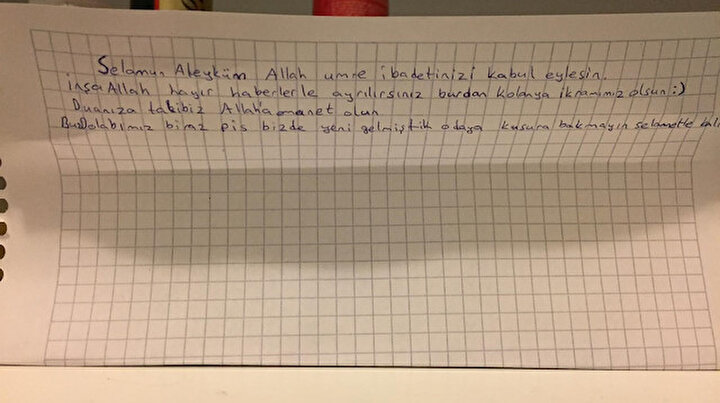 Selamun Aleyküm Allah umre ibadetinizi kabul eylesin.
inşaAllah hayır haberlerle ayrılırsınız burdan kolonya ikramımız olsun :)
Duanıza talibiz Allah'a emanet olun
BuzDolabımız biraz pis bizde yeni gelmiştik odaya kusura bakmayın selametle kalı